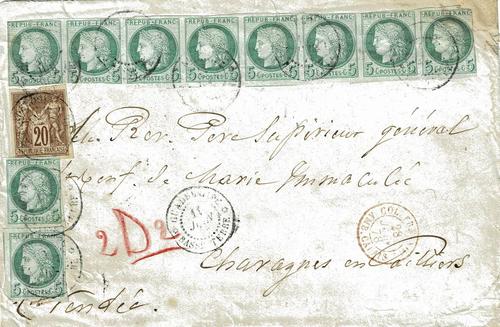 REPUB·FRANC REPUB·FRANC REPUB·FRANC REPUB·FRANC REPUB·FRANC REPUB·FRANC REPUB·FRANC REPUB·FRANC
5 POSTES 5 5 POSTES 5 5 POSTES 5 5 POSTES 5 5 POSTES 5 5 POSTES 5 5 POSTES 5 5 POSTES 5
20
REPUBLIQUE FRANÇAISE
Au Rev. Pere Supérieur général
REPUB·FRANC
5 POSTES 5
de Marie Immaculée
GUADELOUPE
11
BASSE-TERRE
2D2
COL. FR.
26
REPUB·FRANC
5 POSTES 5
en
Vendée.